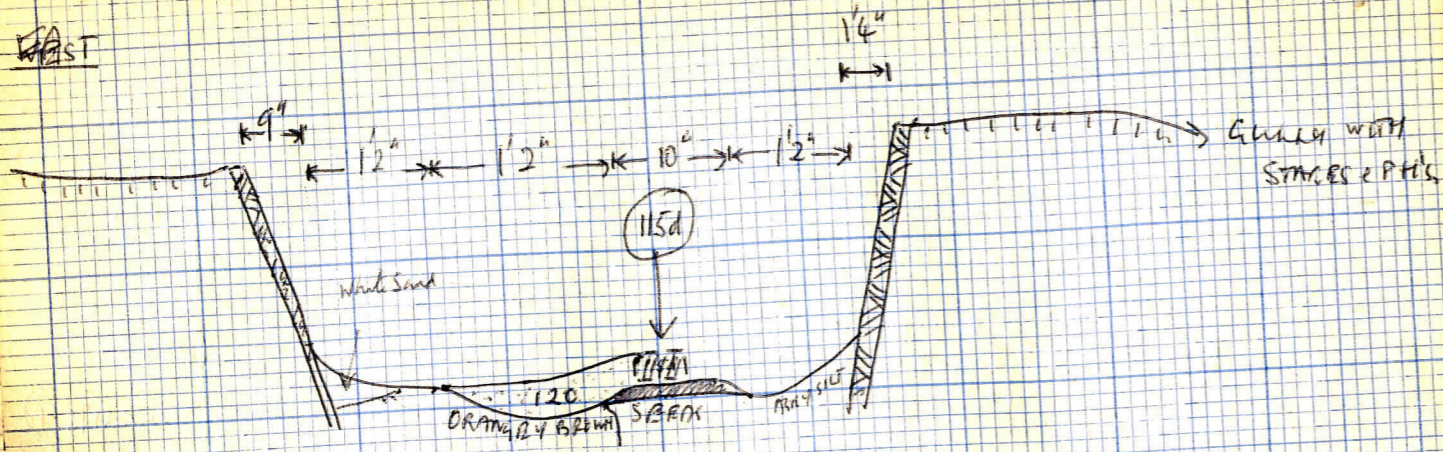 1'4"
9"
1'2"
1'2"
10"
1'2"
GULLEY WITH
STAKES & PH's
115d
White Sand
120
ORANGEY BROWN
SEEDS
SILT